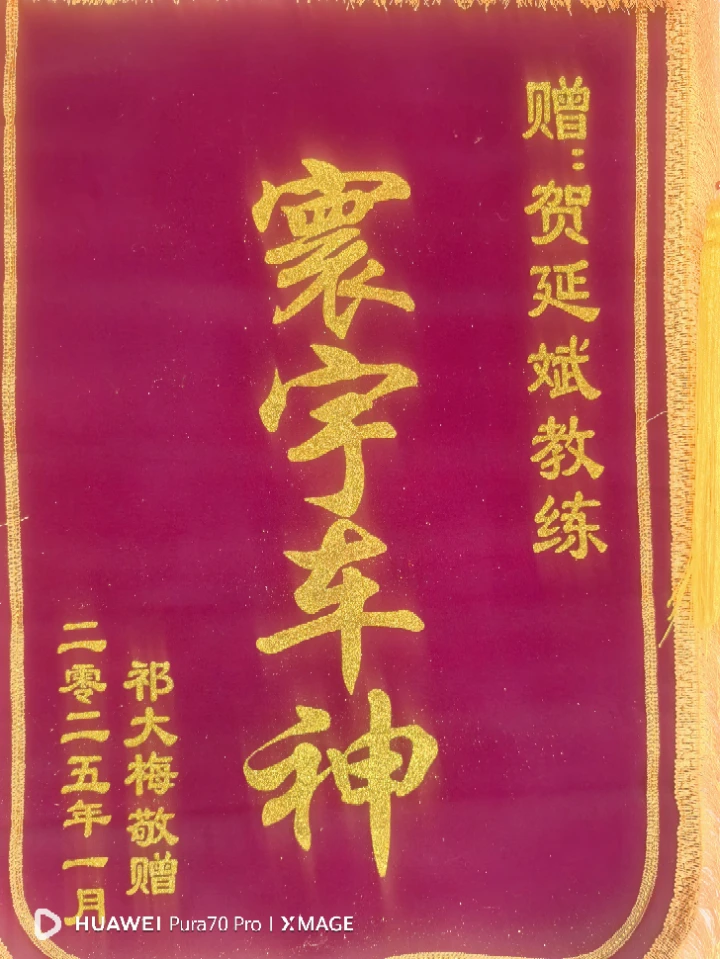 赠:贺延斌教练
寰宇车神
祁大梅敬赠
二零二五年一月
HUAWEI Pura70 Pro | XMAGE